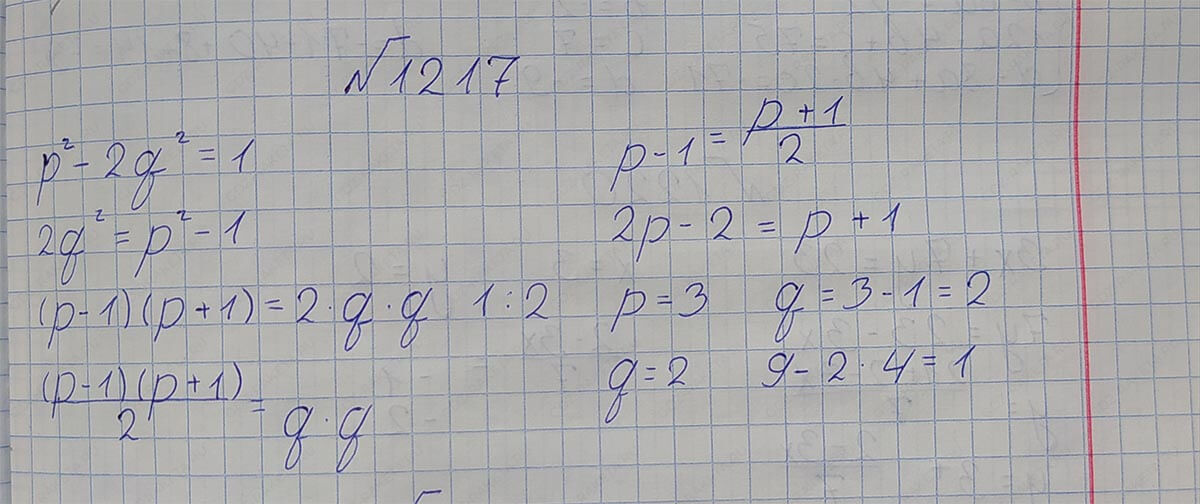 √1217
p² - 2q² = 1
2q² = p² - 1
(p-1)(p+1) = 2·q·q 1:2
(p-1)(p+1)/2 = q·q
p-1 = (p+1)/2
2p-2 = p+1
p = 3 q = 3-1 = 2
q = 2 9-2·4 = 1